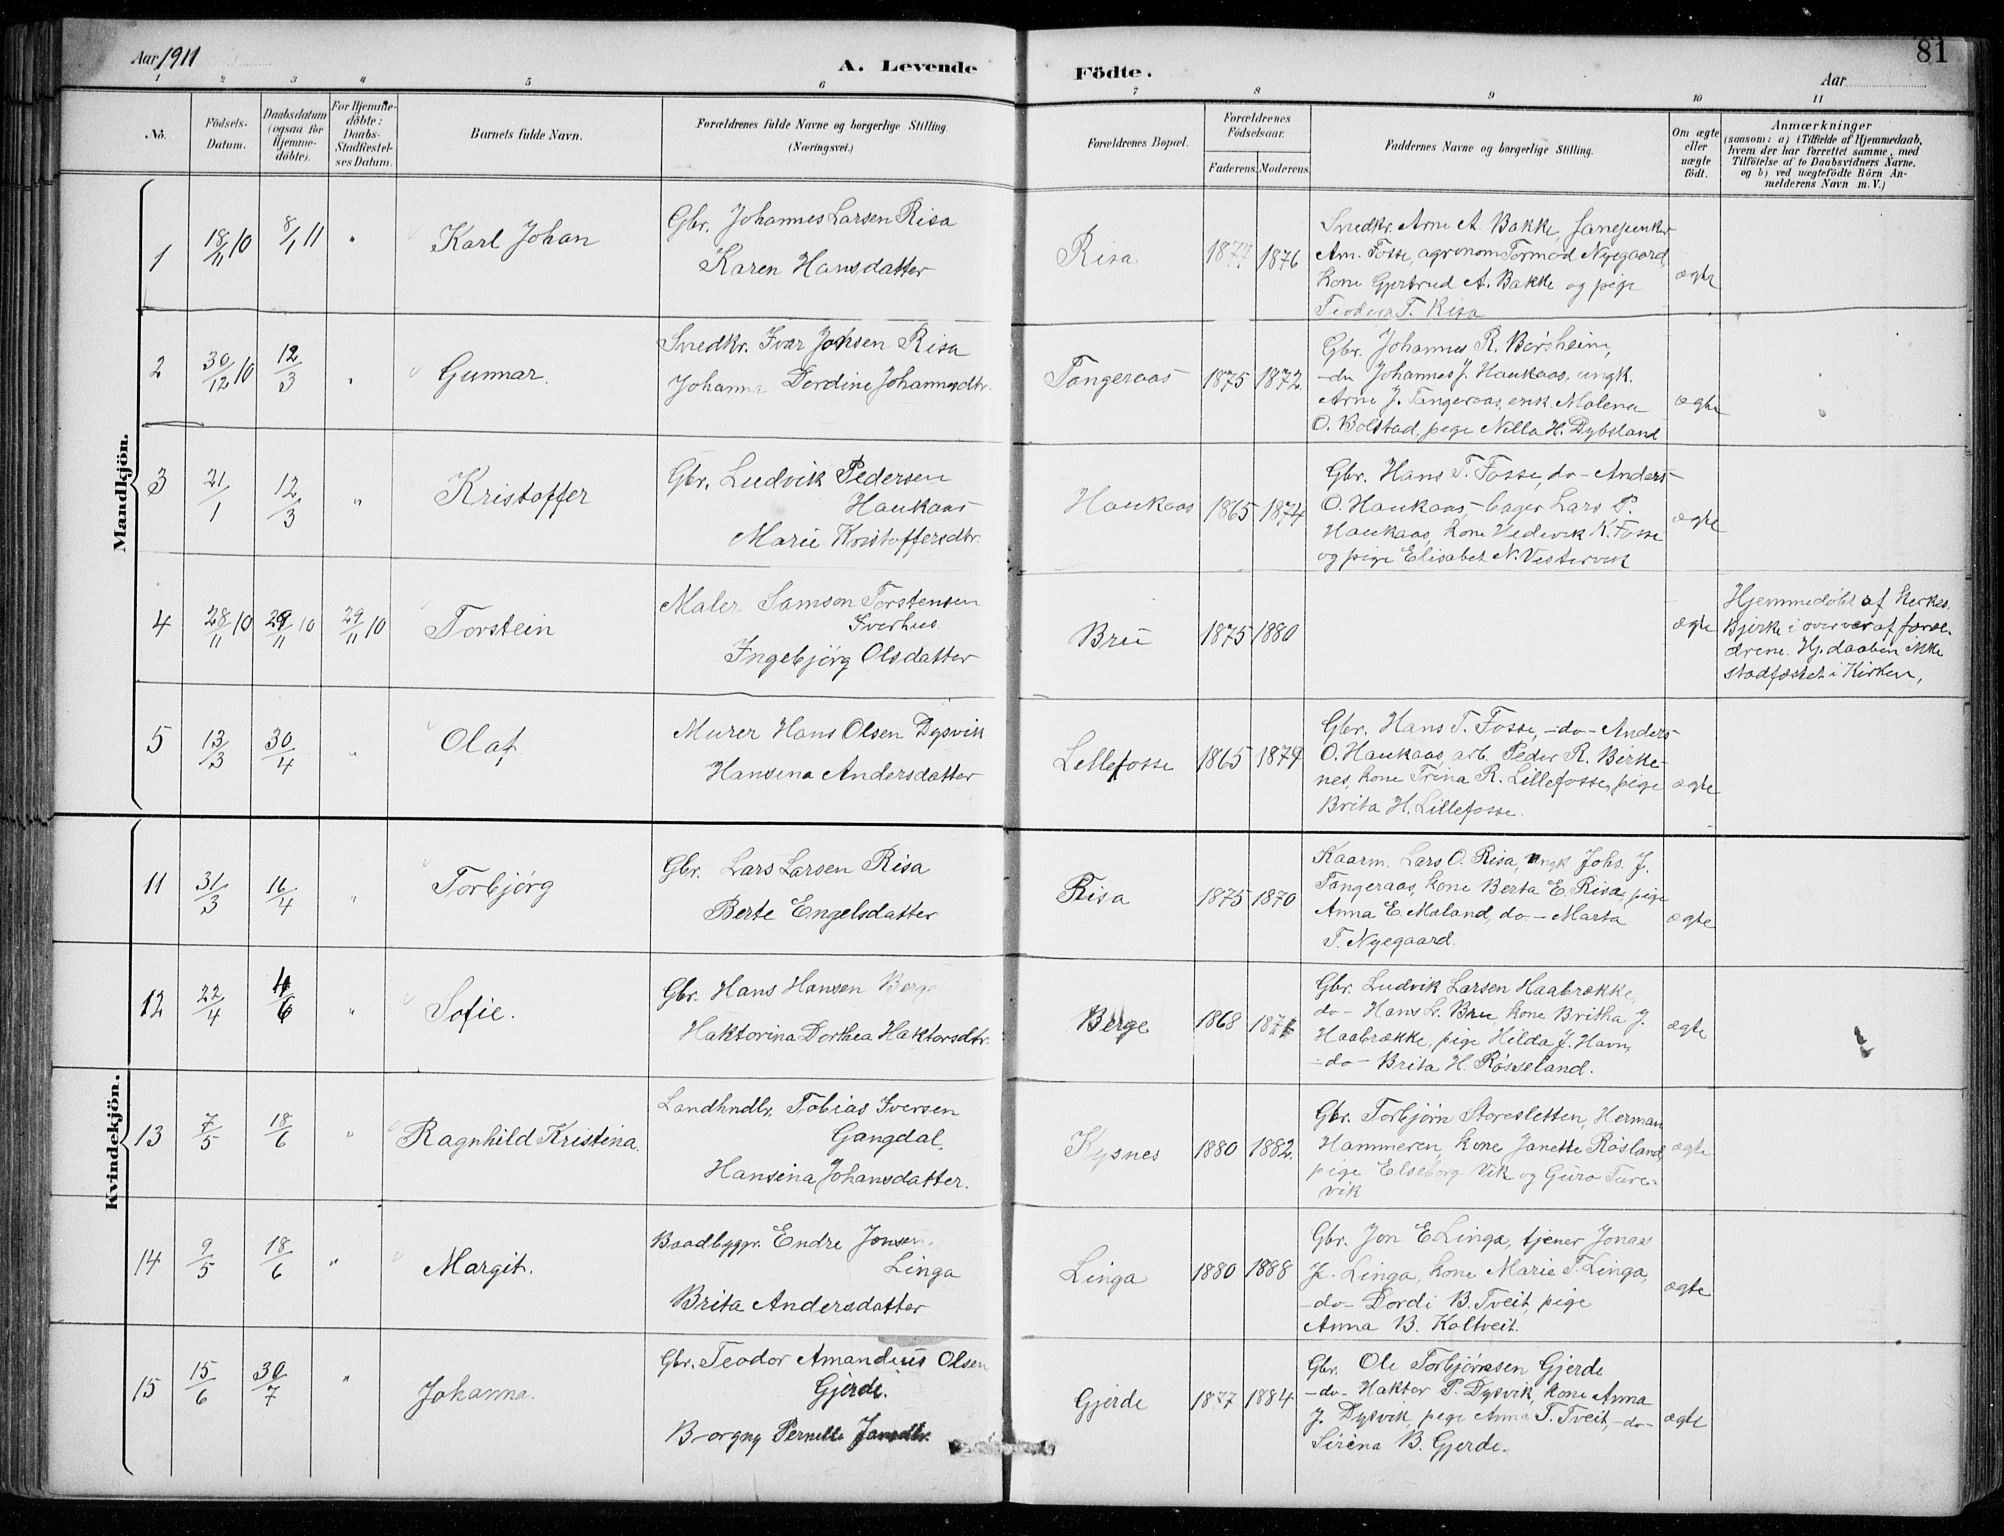 81
Aar 1911
A. Levende Födte.
Aar
1 2 3 4 5 6 7 8 9 10 11
No.
Födsels-Datum.
Daabsdatum (ogsaa for Hjemme-döbte).
For Hjemme-döbte: Daabs-Stadfæstel-ses Datum.
Barnets fulde Navn.
Forældrenes fulde Navne og borgerlige Stilling. (Næringsvei.)
Forældrenes Bopæl.
Forældrenes Födselsaar.
Faderens. Moderens.
Faddernes Navne og borgerlige Stilling.
Om ægte eller uægte födt.
Anmærkninger
(saasom: a) i Tilfælde af Hjemmedaab, hvem der har forrettet samme, med Tilföielse af to Daabsvidners Navne, og b) ved uægtefödte Börn Anmelderens Navn m. V.)
Mandkjön.
1 18/11 10 8/1 11 " Karl Johan
Gbr. Johannes Larsen Risa
Karen Hansdatter
Risa 1877 1876
Snedkr. Arne A. Bakke,
Am. Fosse, agronom Tormod Nyegaard,
kone Gjertrud A. Bakke og pige
Teodora T. Risa
ægte
2 30/12 10 12/3 " Gunnar.
Snedkr. Ivar Johsen Risa
Johanna Dordine Johannesdtr.
Tangeraas 1875 1872.
Gbr. Johannes R. Børsheim,
-do Johannes J. Haukaas, ungk.
Arne J. Tangeraas, enk. Malena
O. Bolstad, pige Nilla H. Dybsland
ægte
3 21/1 12/3 " Kristoffer
Gbr. Ludvik Pedersen
Haukaas
Marie Kristoffersdtr.
Haukaas 1865 1874
Gbr. Hans T. Fosse, do- Anders
O. Haukaas, bager Lars P.
Haukaas, kone Hedevik K. Fosse
og pige Elisabet N. Vestervik
ægte
4 28/11 10 29/11 10 29/11 10 Torstein
Maler Samson Torstensen
Sverhus.
Ingebjörg Olsdatter
Bru 1875 1880
ægte
Hjemmedöbt af Kirkes.
Bjerke i overvær af foræl-
drene. Hj. daaben ikke
stadfæstet i Kirken,
5 13/3 30/4 " Olaf
Murer Hans Olsen Dysvik
Hansina Andersdatter
Lillefosse 1865 1879
Gbr. Hans T. Fosse, -do- Anders
O. Haukaas, arb. Peder R. Birke-
nes, kone Trina R. Lillefosse, pige
Brita H. Lillefosse.
ægte
Kvindekjön.
11 31/3 16/4 " Torbjörg
Gbr. Lars Larsen Risa
Berte Engelsdatter
Risa 1875 1870
Kaarm. Lars O. Risa, ungk Johs. J.
Tangeraas, kone Berta E. Risa, pige
Anna E. Maland, do- Marta
T. Nyegaard.
ægte
12 22/4 4/6 " Sofie.
Gbr. Hans Hansen Berge
Haktorina Dorthea Haktorsdtr.
Berge 1868 1871
Gbr. Ludvik Larsen Haabrække,
do- Hans L. Bru, kone Britha J.
Haabrække, pige Hilda J. Havn,
-do- Brita H. Røsseland.
ægte
13 7/5 18/6 " Ragnhild Kristina.
Landhndlr. Tobias Iversen
Gangdal.
Hansina Johansdatter.
Kysnes 1880 1882.
Gbr. Torbjørn Storesletten, Herman
Hammeren, kone Janette Røsland,
pige Elseborg Vik og Guro Ture-
vik
ægte
14 9/5 18/6 " Margit.
Baadbyggr. Endre Jonsen
Linga
Brita Andersdatter
Linga 1880 1888
Gbr. Jon E. Linga, tjener Jonas
J. Linga, kone Marie T. Linga,
-do- Dordi B. Tveit, pige
Anna B. Koltveit.
ægte
15 15/6 30/7 " Johanna.
Gbr. Teodor Amandius Olsen
Gjerde.
Borgny Pernille Jansdtr.
Gjerde 1877 1884
Gbr. Ole Torbjørnsen Gjerde
-do- Haktor P. Dysvik, kone Anna
J. Dysvik, pige Anna T. Tveit, -do-
Sirena B. Gjerde.
ægte